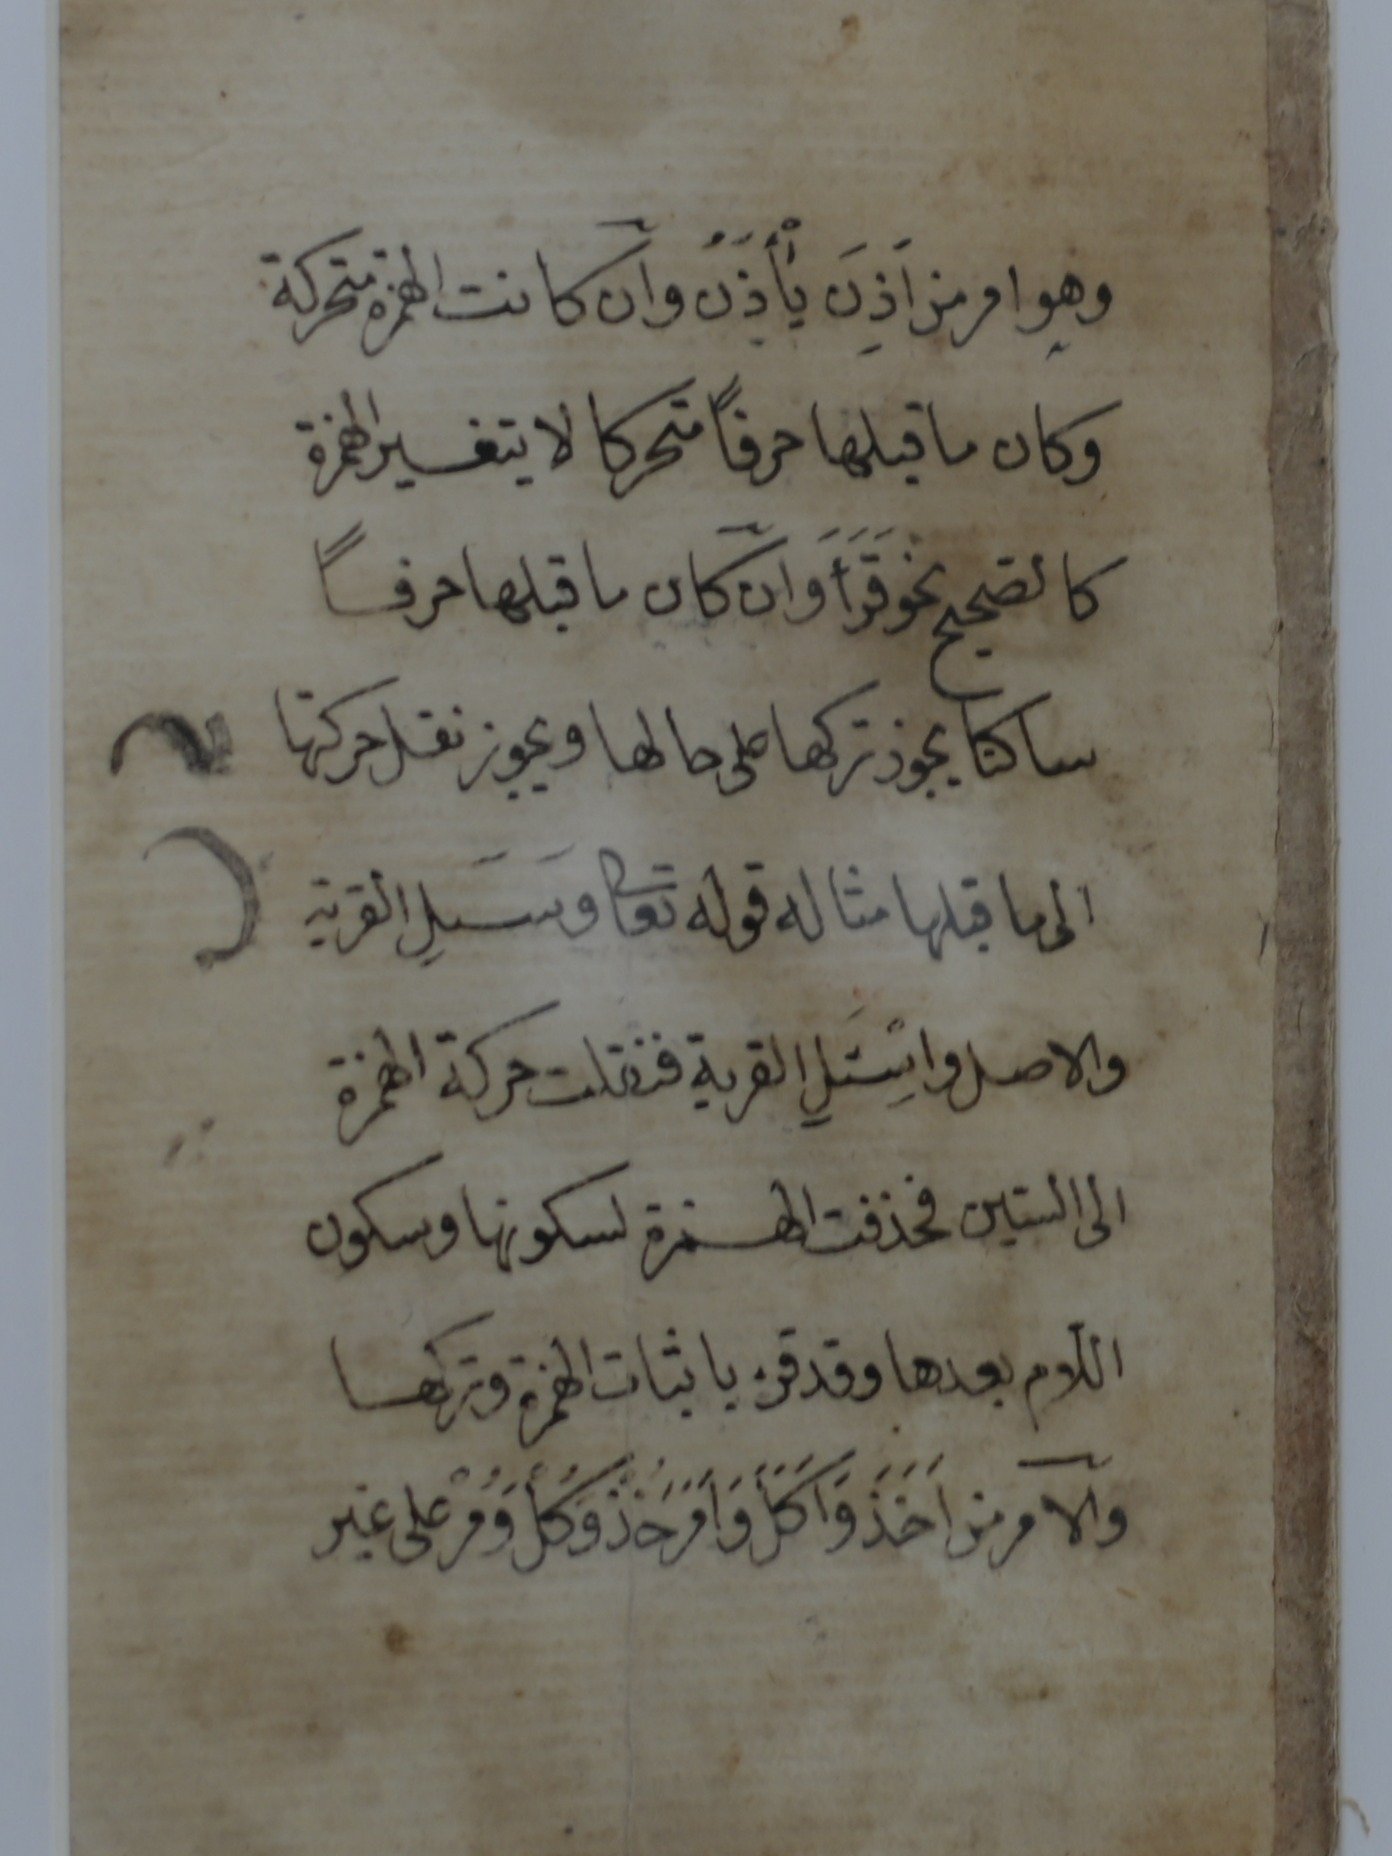 وهو امر من اَذِنَ يَأْذَنُ وان كانت الهمزة متحركة
وكان ما قبلها حرفاً متحركا لا يتغير الهمزة
كالصحيح نحو قَرَأَ وَان كان ما قبلها حرفاً
ساكنا يجوز تركها على حالها ويجوز نقل حركتها
الى ما قبلها مثاله قوله تعالى وَسَلِ القرية
والاصل واسْئَلِ القرية فنقلت حركة الهمزة
الى السين فحذفت الهمزة لسكونها وسكون
اللام بعدها وقد قرء باثبات الهمزة وتركها
والامر من اَخَذَ وَاَكَلَ وَاَمَرَ خُذْ وَكُلْ وَمُرْ على غير